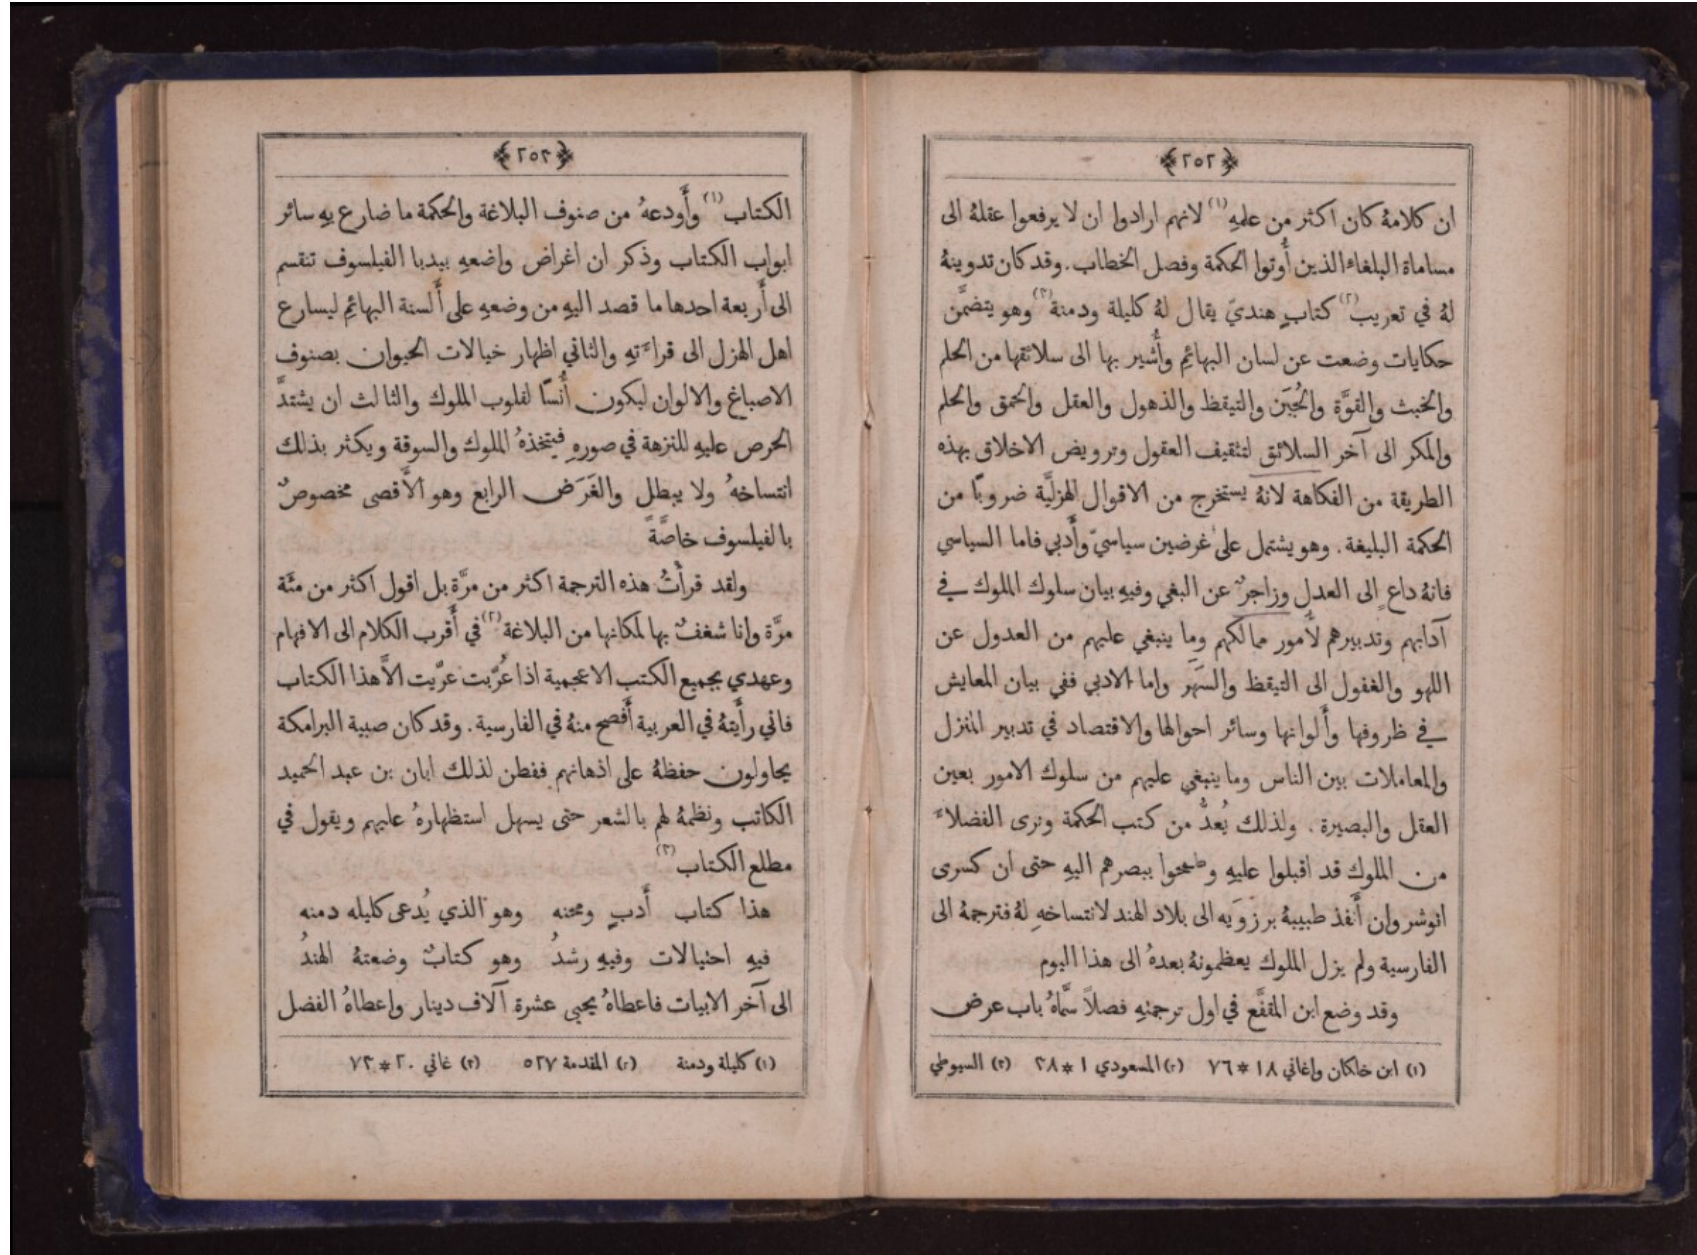 ﴿٢٥٢﴾
ان كلامهُ كان اكثر من علمهِ (١) لانهم ارادوا ان لا يرفعوا عقلهُ الى
مساماة البلغاء الذين أُوتوا الحكمة وفصل الخطاب. وقد كان تدوينهُ
لهُ في تعريب (٢) كتابٍ هنديّ يقال لهُ كليلة ودمنة (٣) وهو يتضمَّن
حكايات وضعت عن لسان البهائمِ وأُشير بها الى سلائقها من الحلم
والخبث والقوَّة والجُبَن والتيقظ والذهول والعقل والحمق والحلم
والمكر الى آخر السلائق لتثقيف العقول وترويض الاخلاق بهذه
الطريقة من الفكاهة لانهُ يستخرج من الاقوال الهزليَّة ضروبًا من
الحكمة البليغة. وهو يشتمل على غرضين سياسيّ وأَدبي فاما السياسي
فانهُ داعٍ الى العدل وزاجرٌ عن البغي وفيهِ بيان سلوك الملوك في
آدابهم وتدبيرهم لأُمور ممالكهم وما ينبغي عليهم من العدول عن
اللهو والغفول الى التيقظ والسَهَر واما الادبي ففي بيان المعايش
في ظروفها وأَلوانها وسائر احوالها والاقتصاد في تدبير المنزل
والمعاملات بين الناس وما ينبغي عليهم من سلوك الامور بعين
العقل والبصيرة. ولذلك يُعدُّ من كتب الحكمة ونرى الفضلاءَ
من الملوك قد اقبلوا عليهِ وطمحوا ببصرهم اليهِ حتى ان كسرى
انوشروان أَنفذ طبيبهُ برزوَيه الى بلاد الهند لانتساخهِ لهُ فترجمهُ الى
الفارسية ولم يزل الملوك يعظمونهُ بعدهُ الى هذا اليوم
وقد وضع ابن المقفَّع في اول ترجمتهِ فصلاً سمَّاهُ باب عرض
(١) ابن خلكان واغاني ١٨ * ٧٦ (٢) المسعودي ١ * ٣٨ (٣) السيوطي
﴿٢٥٣﴾
الكتاب (١) وأَودعهُ من صنوف البلاغة والحكمة ما ضارع بهِ سائر
ابواب الكتاب وذكر ان اغراض واضعهِ بيدبا الفيلسوف تنقسم
الى أَربعة احدها ما قصد اليهِ من وضعهِ على أَلسنة البهائمِ ليسارع
اهل الهزل الى قراءَتهِ والثاني اظهار خيالات الحيوان بصنوف
الاصباغ والالوان ليكون أُنسًا لقلوب الملوك والثالث ان يشتدَّ
الحرص عليهِ للنزهة في صورهِ فيتخذهُ الملوك والسوقة ويكثر بذلك
انتساخهُ ولا يبطل والغَرَض الرابع وهو الأَقصى مخصوصٌ
بالفيلسوف خاصَّةً
ولقد قرأْتُ هذه الترجمة اكثر من مرَّة بل اقول اكثر من مئَة
مرَّة وانا شغفٌ بها لمكانها من البلاغة (٢) في أَقرب الكلام الى الافهام
وعهدي بجميع الكتب الاعجمية اذا عُرّبت عرّيت الاَّ هذا الكتاب
فاني رأَيتهُ في العربية أَفصح منهُ في الفارسية. وقد كان صبية البرامكة
يحاولون حفظهُ على اذهانهم ففطن لذلك ابان بن عبد الحميد
الكاتب ونظمهُ لهم بالشعر حتى يسهل استظهارهُ عليهم ويقول في
مطلع الكتاب (٣)
هذا كتاب أَدبٍ ومحنه وهو الذي يُدعى كليله دمنه
فيهِ احتيالات وفيهِ رشدُ وهو كتابٌ وضعتهُ الهندُ
الى آخر الابيات فاعطاهُ يحيى عشرة آلاف دينار واعطاهُ الفضل
(١) كليلة ودمنة (٢) المقدمة ٥٢٧ (٣) غاني ٢٠ * ٧٣